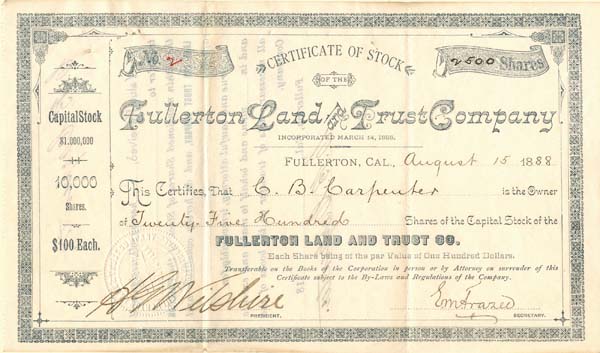 No. 2
CERTIFICATE OF STOCK
2500 Shares
OF THE
Fullerton Land and Trust Company
INCORPORATED MARCH 14, 1888.
Capital Stock
$1,000,000
10,000
Shares.
$100 Each.
FULLERTON, CAL., August 15 1888.
This Certifies, That C. B. Carpenter is the Owner
of Twenty-Five Hundred Shares of the Capital Stock of the
FULLERTON LAND AND TRUST CO.
Each Share being of the par Value of One Hundred Dollars.
Transferable on the Books of the Corporation in person or by Attorney on surrender of this
Certificate subject to the By-Laws and Regulations of the Company.
H G Wilshire
PRESIDENT.
SECRETARY.